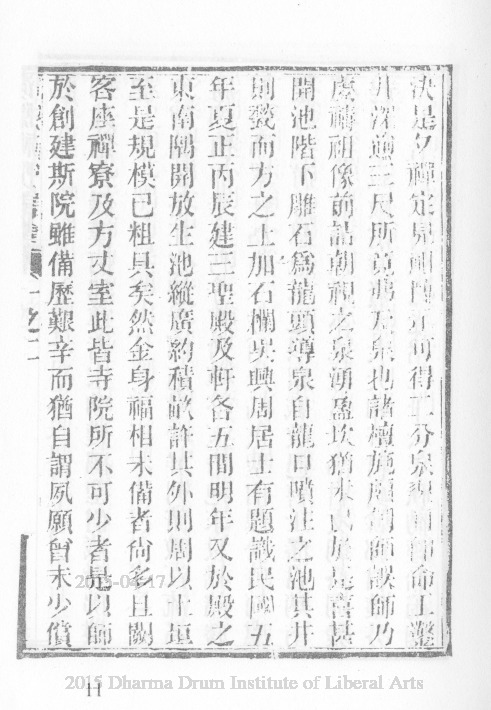 決是夕禪定見可得二分泉師命工鑿
井深逾三尺所竟弗及泉也諸檀施頗師誤師乃
虔禱祖像前詰朝視之泉湧盈坎猶未已於是喜甚
開池階下雕石爲龍頭導泉自龍口噴注之池其井
則甃而方之上加石欄吳興周居士有題識民國五
年夏正丙辰建三聖殿及軒各五間明年又於殿之
東南隅開放生池縱廣約積畝許其外則周以土垣
至是規模已粗具矣然金身福相未備者尚多且闕
客座禪寮及方丈室此皆寺院所不可少者是以師
於創建斯院雖備歷艱辛而猶自謂夙願曾未少償
一之二
2015-04-17
2015 Dharma Drum Institute of Liberal Arts
11